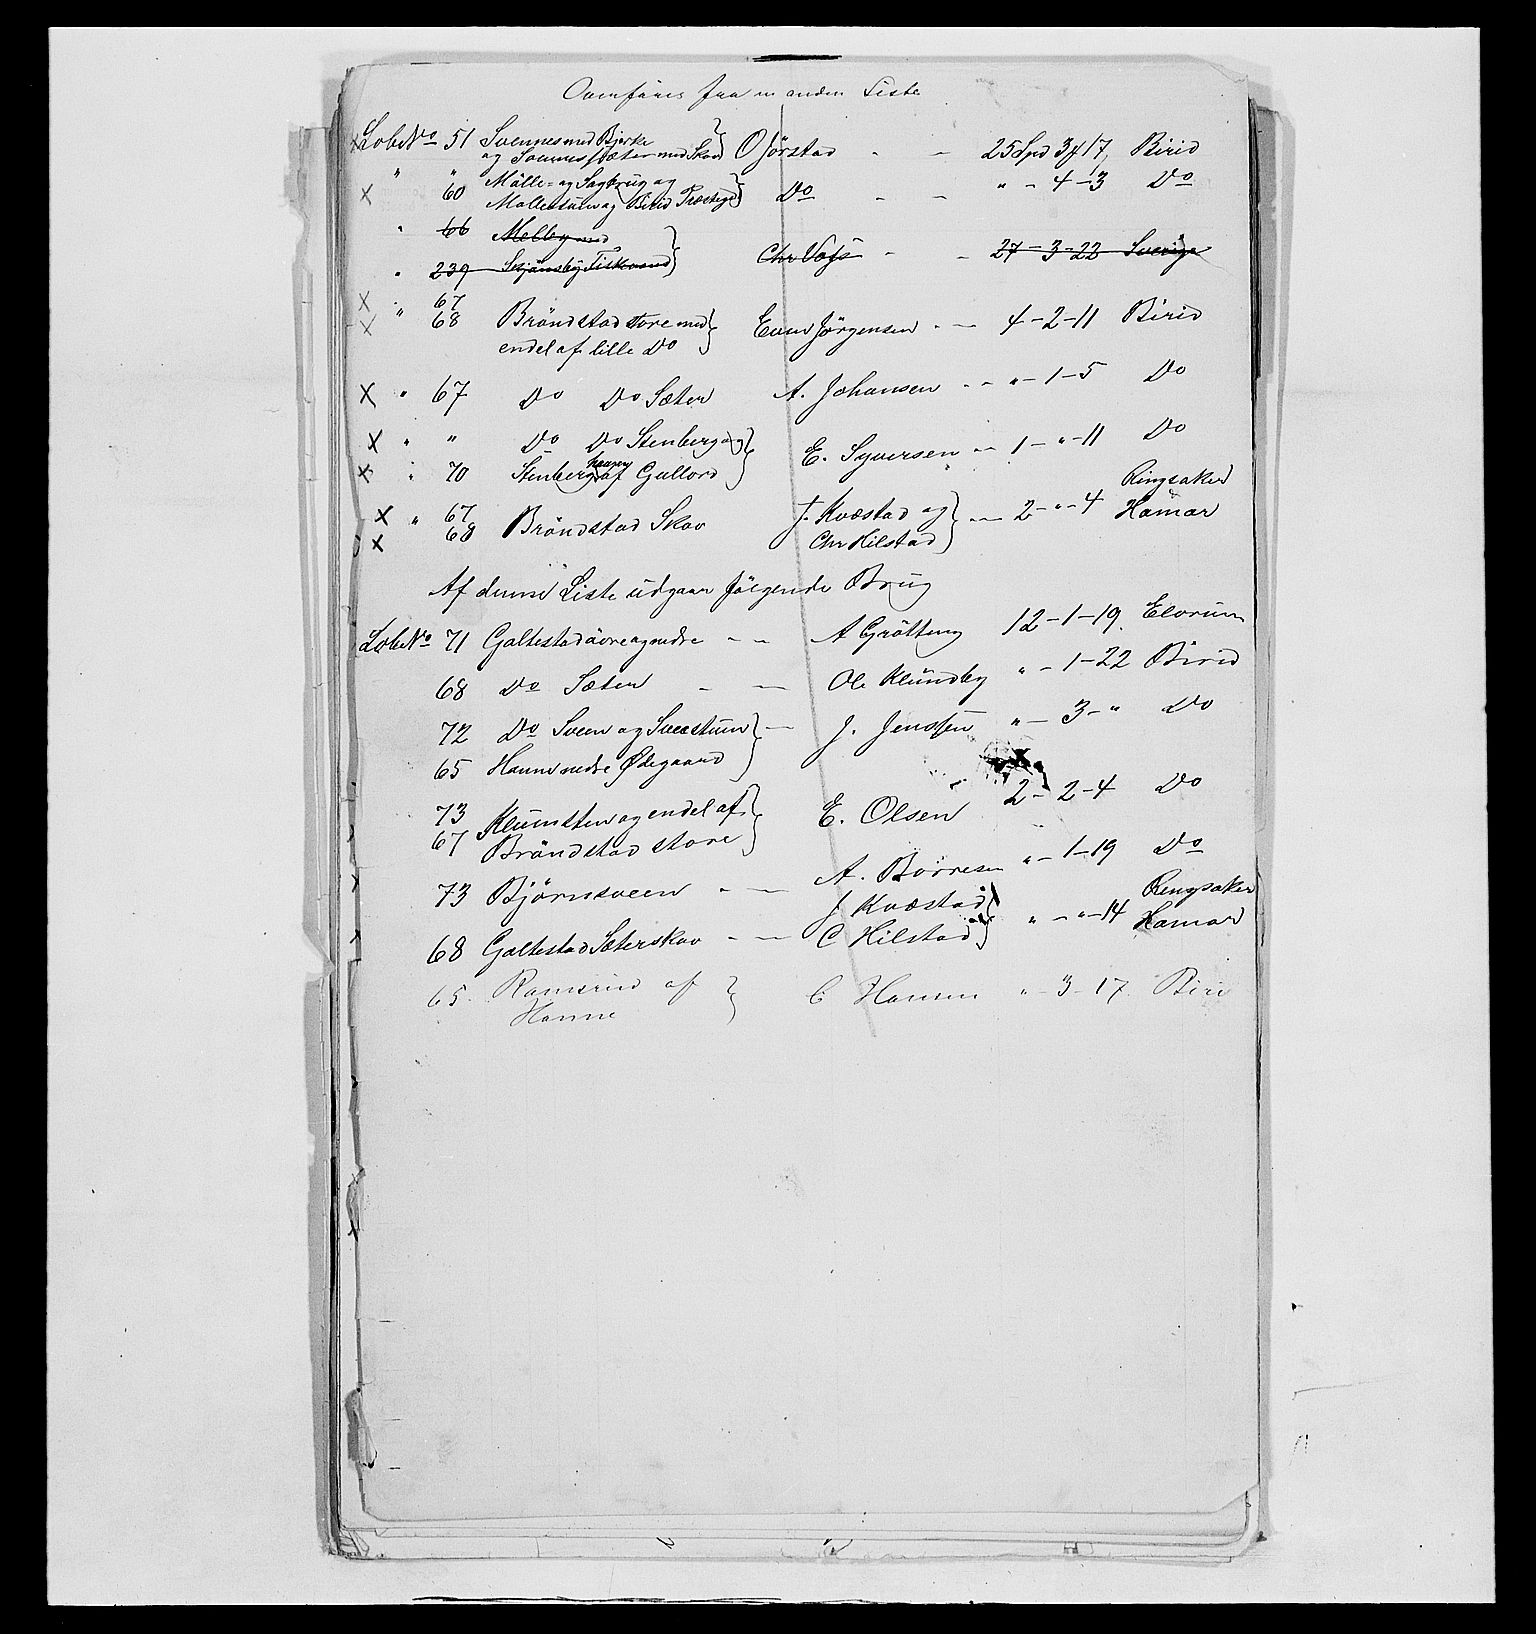 Overføres fra en anden Liste
LøbeNo 51 Svennes med Bjerke
og Svennessæter med Skov } O Jørstad - - 25 Spd 3 # 17, Birid
" " 60 Mølle- og Sagbrug og
Møllestuen ag Birid Præstegd } Do - - " - 4 - 3 Do
" 66 Melby med
" 239 Fiskevand } Chr - - 27 - 3 - 22 Sverige
" 67
" 68 Bröndstad store med
endel af lille Do } Even Jørgensen - - 4 - 2 - 11 Birid
" 67 Do Do Sæter A. Johansen - - " - 1 - 5 Do
" " Do Do Stenberg og
" 70 Stenberghaugen af Gullord } E. Syversen - - 1 - " - 11 Do
" 67
68 Bröndstad Skov J. Kvæstad og
Chr Hilstad } - - 2 - " - 4 Ringsaker
Hamar
Af denne Liste udgaar følgende Brug
LøbeNo 71 Galtestad övre og nedre - - A Gråtteng 12 - 1 - 19. Elvrum
68 Do Sæter - - Ole Klundby " - 1 - 22 Birid
72 Do Sveen og Sveestuen
65 Hanne nedre Ødegaard } - J. Jenssen " - 3 - " Do
73 Klumsten og endel af
67 Bröndstad store } E. Olsen 2 - 2 - 4 Do
73 Björnsveen - - A. Borresen " - 1 - 19 Do
68 Galtestad Sæterskov - - J Kvæstad
C Hilstad } " - " - 14 Ringsaker
Hamar
65. Ramsrud af
Hanne } C Hanne " - 3 - 17. Biri